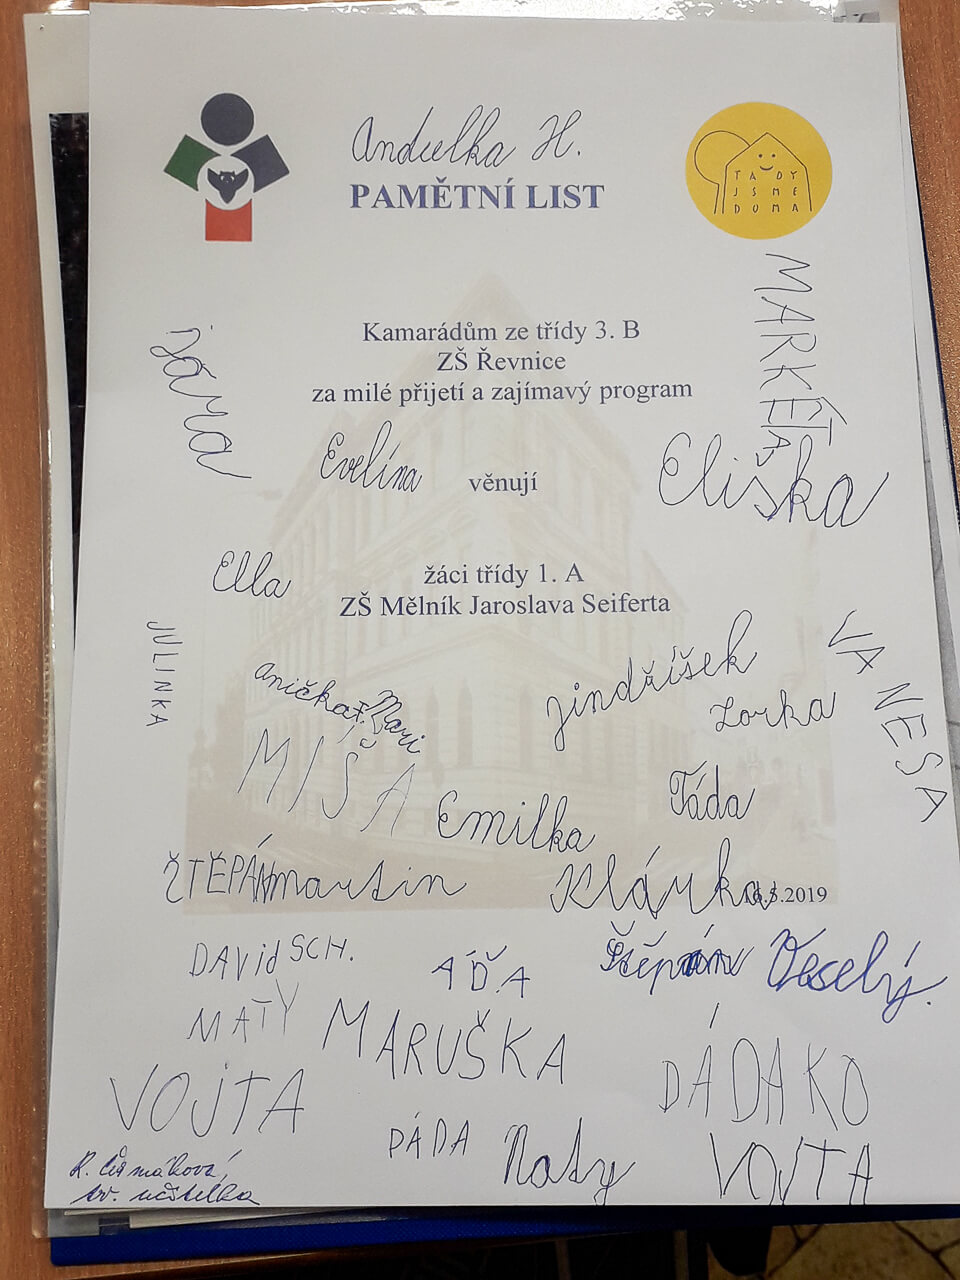 Andulka H.
PAMĚTNÍ LIST
TADY
JSME
DOMA
MARKÉTA
Kamarádům ze třídy 3. B
ZŠ Řevnice
za milé přijetí a zajímavý program
Jára
Evelína
věnují
Eliška
Ella
žáci třídy 1. A
ZŠ Mělník Jaroslava Seiferta
JULINKA
VANESA
Anička F.
Mari
Jindříšek
Lorka
MÍŠA
Emilka
Táda
ŠTĚPÁN
martin
Klárka
16.5.2019
DAViD SCH.
AĎA
Štěpán Veselý.
MATY
MARUŠKA
DÁDA KO
VOJTA
PÁDA
Naty
VOJTA
tř. učitelka